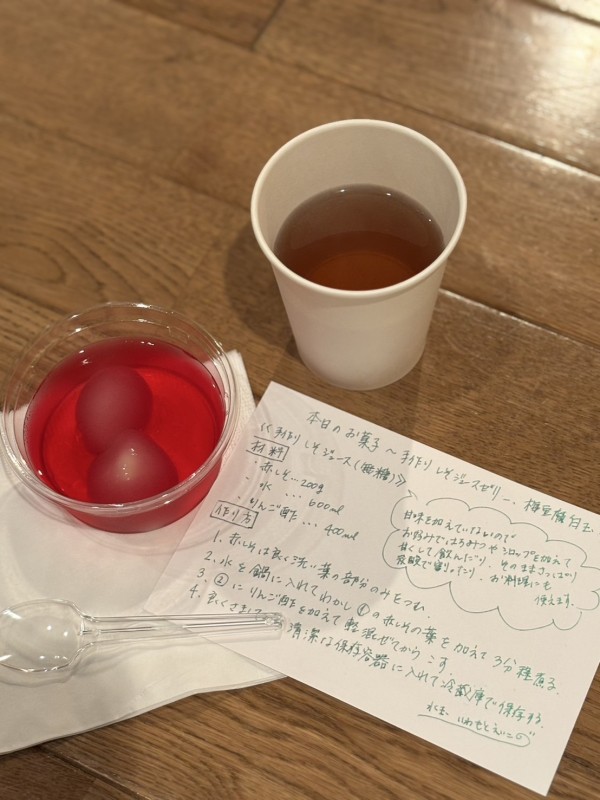 本日のお菓子〜手作りしそジュースゼリー、梅
白玉
《手作りしそジュース(無糖)》
材料
・赤しそ…200g
・水 … 600ml
・りんご酢… 400ml
作り方
1. 赤しそは良く洗い葉の部分のみをつむ。
2. 水を鍋に入れてわかし①の赤しその葉を加えて3分程煮る。
3. ②にりんご酢を加えて軽く混ぜてからこす。
4. 良くさまし 清潔な保存容器に入れて冷蔵庫で保存する。
甘味を加えていないので
お好みではちみつやシロップを加えて
甘くして飲んだり、そのままさっぱり
炭酸で割ったり、お料理にも
使えます。